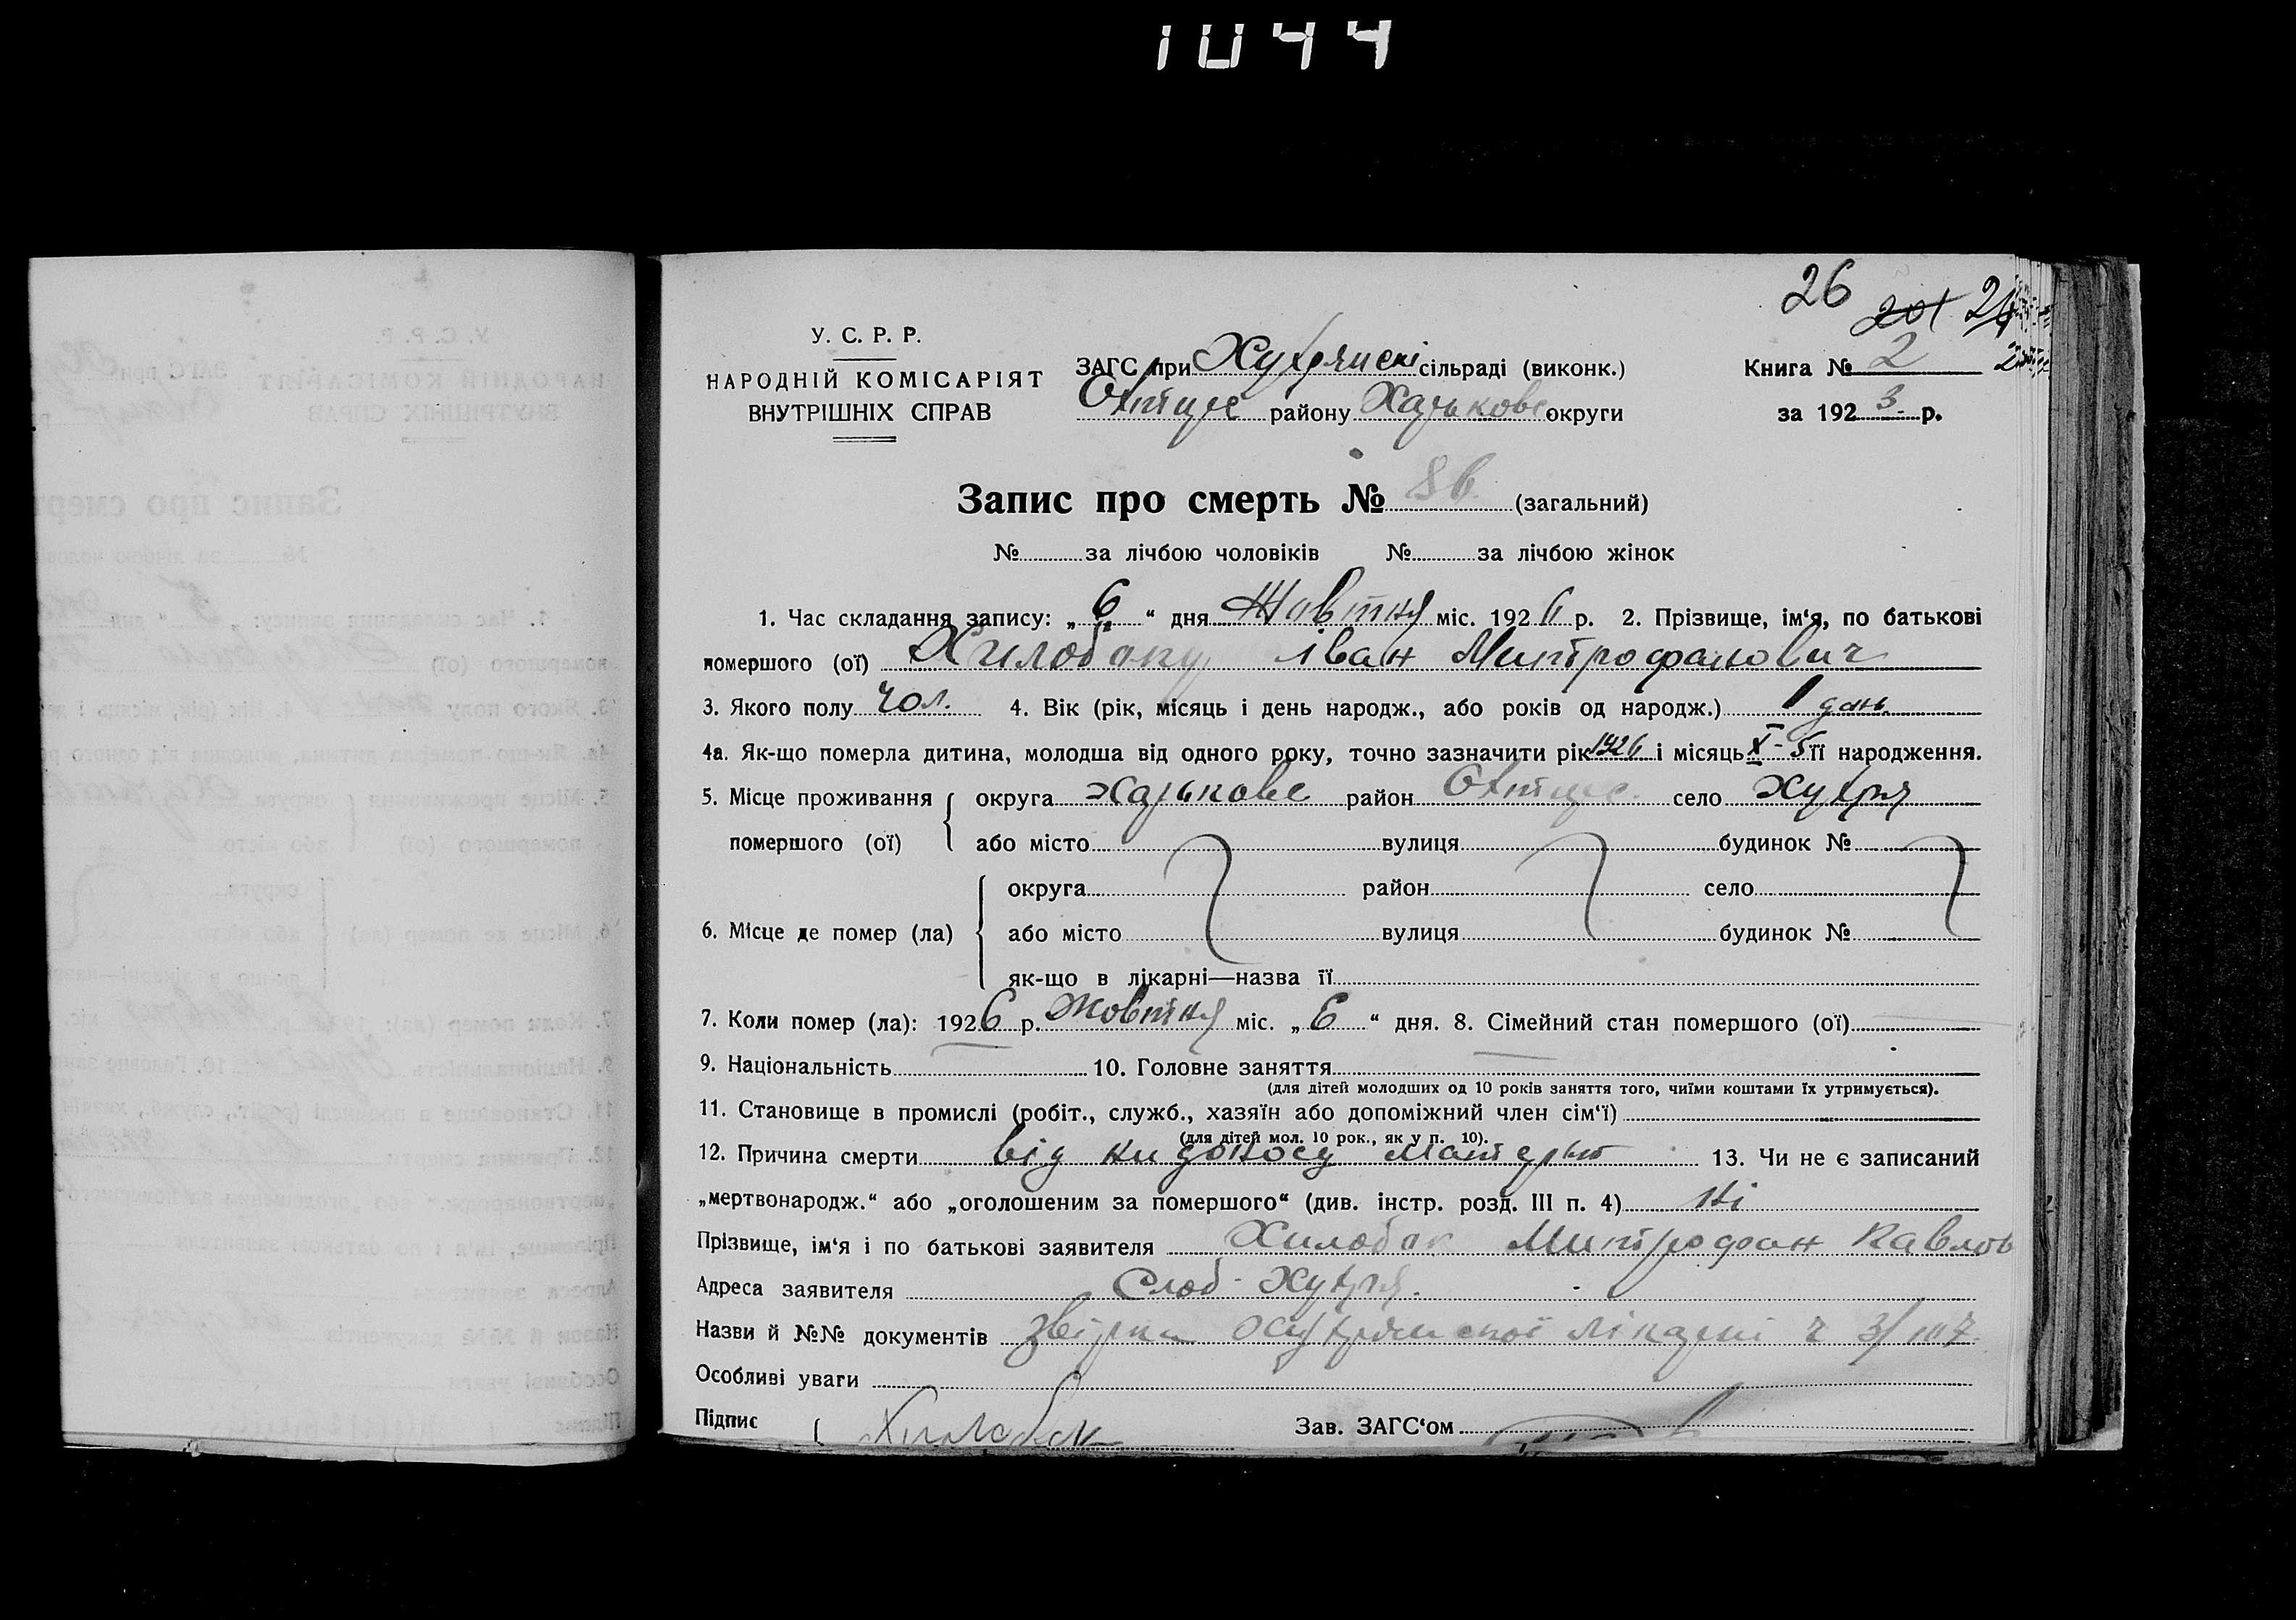 1044
26 201 24
У. С. Р. Р.
НАРОДНІЙ КОМІСАРІЯТ
ВНУТРІШНІХ СПРАВ
ЗАГС при сільраді (виконк.)
району Харьковс округи
Книга № 2
за 192 3 р.
Запис про смерть № 86 (загальний)
№ за лічбою чоловіків № за лічбою жінок
1. Час складання запису: „ 6 “ дня Жовтня міс. 192 6 р. 2. Прізвище, ім‘я, по батькові
помершого (ої) Хилобоку Іван Митрофанович
3. Якого полу чол. 4. Вік (рік, місяць і день народж., або років од народж.) 1 день
4а. Як-що померла дитина, молодша від одного року, точно зазначити рік 1926 і місяць X - 5 її народження.
5. Місце проживання помершого (ої) округа Харькове район село
або місто вулиця будинок №
6. Місце де помер (ла) округа район село
або місто вулиця будинок №
як-що в лікарні—назва її
7. Коли помер (ла): 192 6 р. Жовтня міс. „ 6 “ дня. 8. Сімейний стан помершого (ої)
9. Національність 10. Головне заняття
(для дітей молодших од 10 років заняття того, чиїми коштами їх утримується).
11. Становище в промислі (робіт., служб., хазяїн або допоміжний член сім‘ї)
(для дітей мол. 10 рок., як у п. 10).
12. Причина смерти від недоносу матерью 13. Чи не є записаний
„мертвонародж.“ або „оголошеним за помершого“ (див. інстр. розд. III п. 4) Ні
Прізвище, ім‘я і по батькові заявителя Хилобок Митрофан Павлов
Адреса заявителя Слоб.
Назви й №№ документів лікарні
Особливі уваги
Підпис Хилобок Зав. ЗАГС‘ом